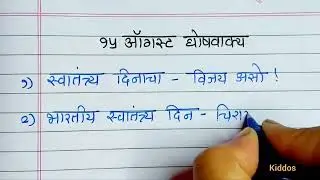 १५ ऑगस्ट घोषवाक्य
१) स्वातंत्र्य दिनाचा - विजय असो !
२) भारतीय स्वातंत्र्य दिन -
Kiddos